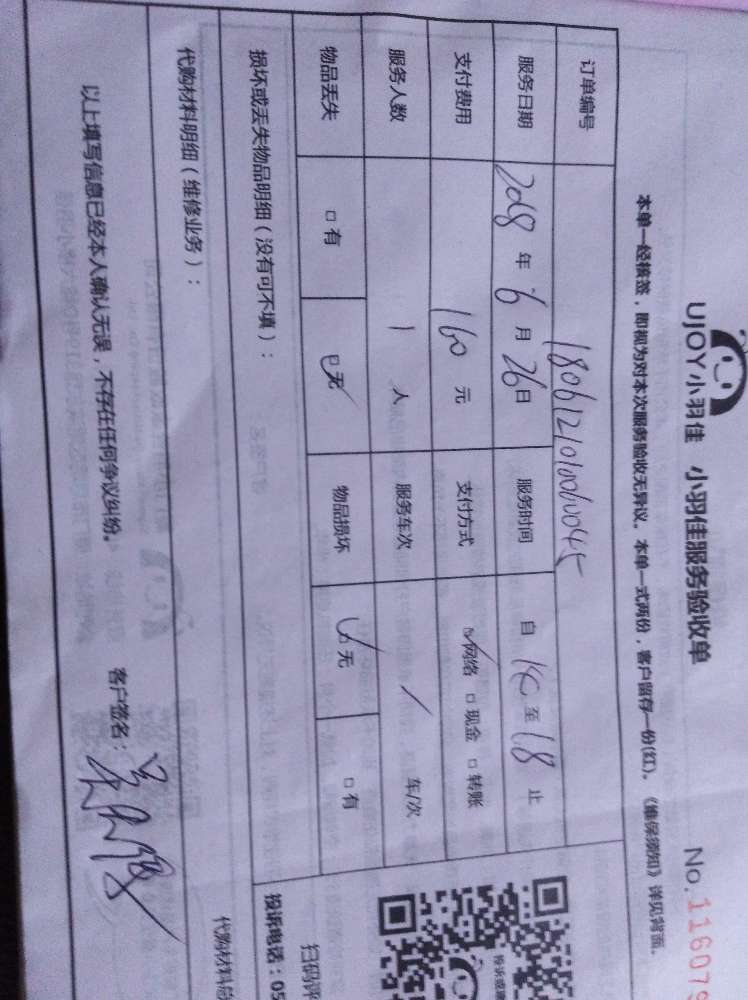 UJOY小羽佳 小羽佳服务验收单
No.116079
本单一经核签，即视为对本次服务验收无异议。本单一式两份，客户留存一份(红)。《维保须知》详见背面。
订单编号
服务日期 2018 年 6 月 26 日 服务时间 自 14 至 18 止
支付费用 160 元 支付方式 ☑网络 □现金 □转账
服务人数 1 人 服务车次 / 车/次
物品丢失 □有 ☑无 物品损坏 ☑无 □有
损坏或丢失物品明细（没有可不填）：
投诉电话：05
扫码评
投诉或建
代购材料明细（维修业务）：
代购材料总
以上填写信息已经本人确认无误，不存在任何争议纠纷。 客户签名：